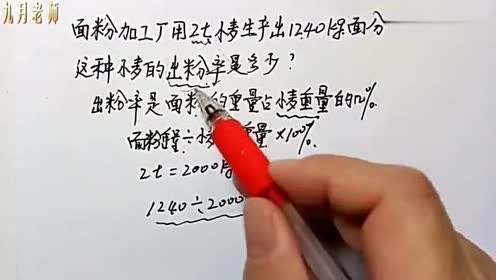 九月老师
面粉加工厂用2t小麦生产出1240kg面分
这种小麦的出粉率是多少?
出粉率是面粉的重量占小麦重量的12%.
面粉重量÷小 重量×100%.
2t=2000
1240÷2000